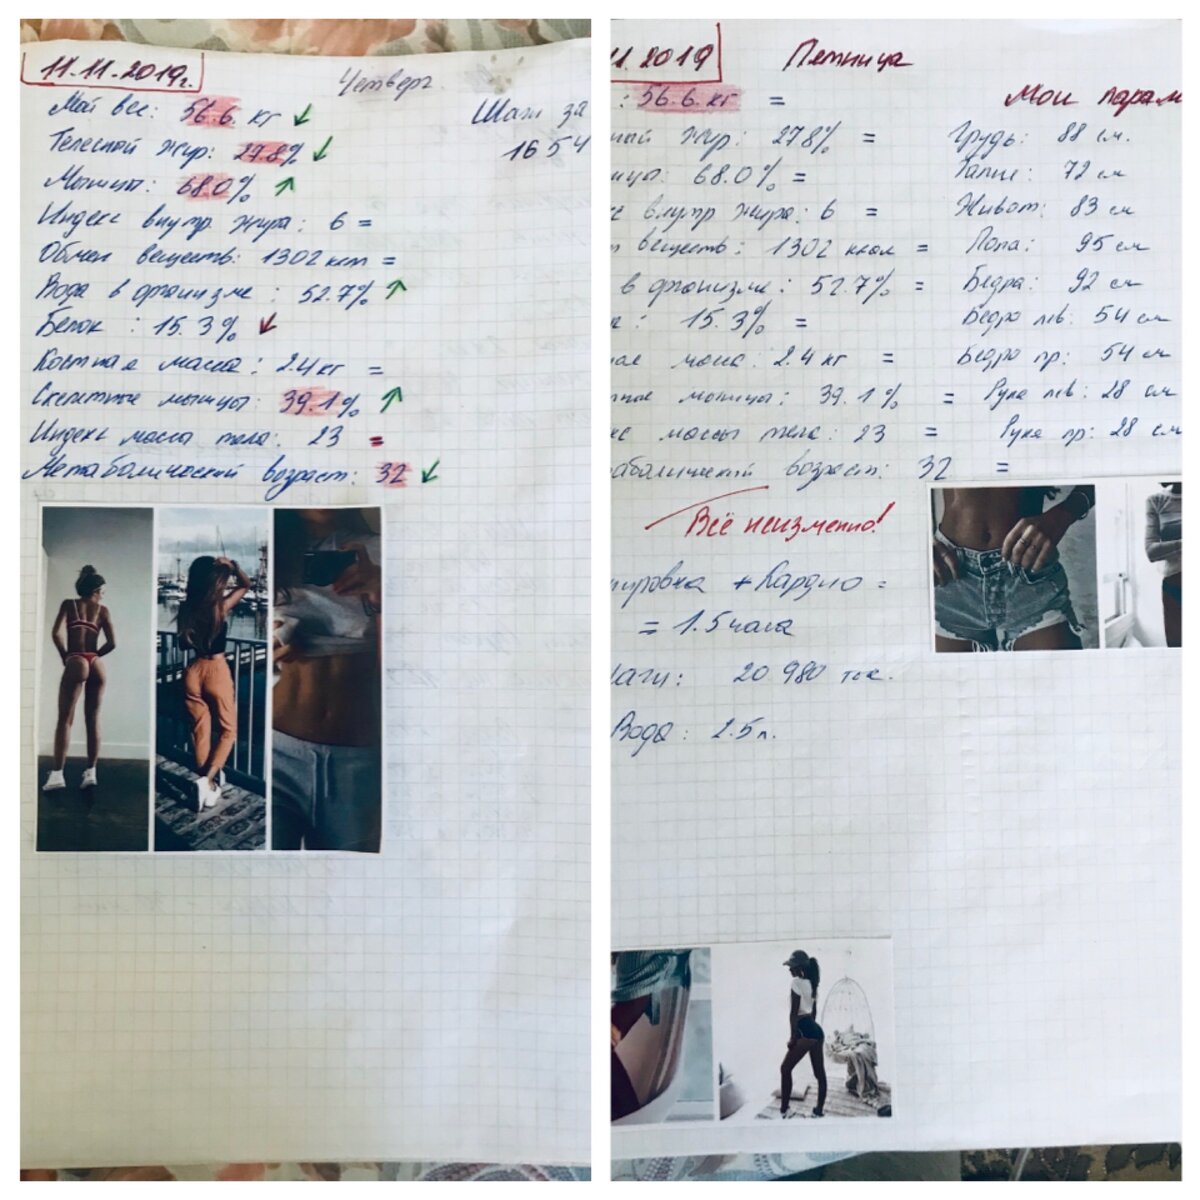 11.11.2019г.
Четверг
Мой вес: 56.6. кг ↓
Шаги за
Телесной жир: 27.8% ↓
1654
Мышцы: 68.0% ↑
Индекс внутр. жира: 6 =
Обмен веществ: 1302 =
Вода в организме: 52.7% ↑
Белок: 15.3% ↓
Костная масса: 2.4 кг =
Скелетные мышцы: 39.1% ↑
Индекс массы тела: 23 =
Метаболический возраст: 32 ↓
1. 2019
Пятница
: 56.6. кг =
Мои парам
ной жир: 27.8% =
Грудь: 88 см.
ица: 68.0% =
Талие: 72 см
с внутр жира: 6 =
Живот: 83 см
веществ: 1302 ккал =
Попа: 95 см
в организме: 52.7% =
Бедра: 92 см
: 15.3% =
Бедро лев: 54 см
ная масса: 2.4 кг =
Бедро пр: 54 см
ные мышцы: 39.1% =
Рука лев: 28 см
кс массы тела: 23 =
Рука пр: 28 см
аболический возраст: 32 =
Всё неизменно!
нировка + Кардио =
= 1.5 часа
аги: 20 980 тыс.
Вода: 2.5 л.